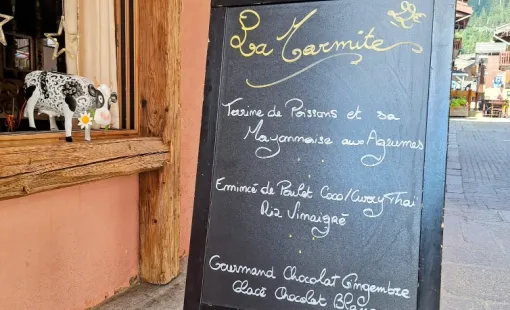 La Marmite
Terrine de Poissons et sa
Mayonnaise aux Agrumes
Emincé de Poulet Coco/Curry Thaï
Riz Vinaigré
Gourmand Chocolat Gingembre
Glacé Chocolat Blanc